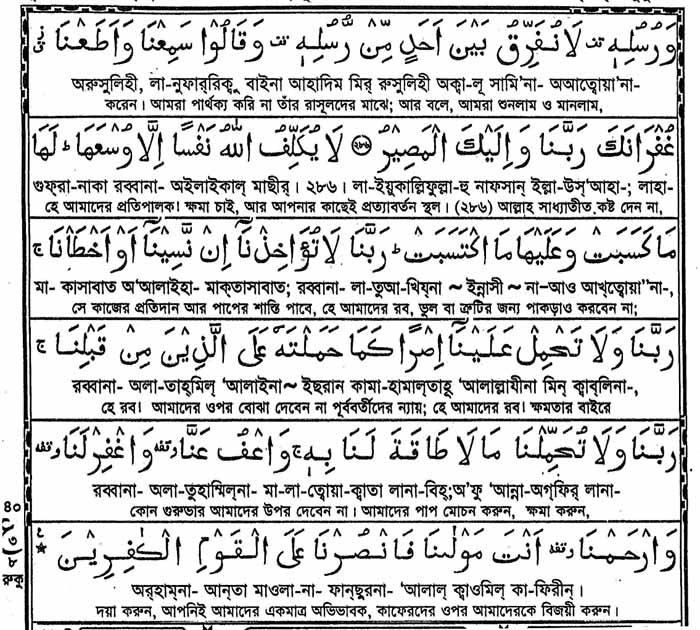 وَرُسُلِهٖ قف لَا نُفَرِّقُ بَيْنَ اَحَدٍ مِّنْ رُّسُلِهٖ قف وَقَالُوْا سَمِعْنَا وَاَطَعْنَا
অরুসুলিহী, লা-নুফার্‌রিক্বু বাইনা আহাদিম মির্ রুসুলিহী অক্বা-লূ সামি'না- অআত্বোয়া'না-
করেন। আমরা পার্থক্য করি না তাঁর রাসূলদের মাঝে; আর বলে, আমরা শুনলাম ও মানলাম,
غُفْرَانَكَ رَبَّنَا وَاِلَيْكَ الْمَصِيْرُ ﴿۲۸۵﴾ لَا يُكَلِّفُ اللّٰهُ نَفْسًا اِلَّا وُسْعَهَا ط لَهَا
গুফ্‌রা-নাকা রব্বানা- অইলাইকাল্ মাছীর্। ২৮৬। লা-ইয়ুকাল্লিফুল্লা-হু নাফসান্ ইল্লা-উস্'আহা-; লাহা-
হে আমাদের প্রতিপালক! ক্ষমা চাই, আর আপনার কাছেই প্রত্যাবর্তন স্থল। (২৮৬) আল্লাহ সাধ্যাতীত কষ্ট দেন না,
مَا كَسَبَتْ وَعَلَيْهَا مَا اكْتَسَبَتْ ط رَبَّنَا لَا تُؤَاخِذْنَآ اِنْ نَّسِيْنَآ اَوْ اَخْطَاْنَا ج
মা- কাসাবাত অ'আলাইহা- মাক্‌তাসাবাত; রব্বানা- লা-তুআ-খিয্‌না ~ ইন্নাসী ~ না-আও আখ্‌ত্বোয়া"না-,
সে কাজের প্রতিদান আর পাপের শাস্তি পাবে, হে আমাদের রব, ভুল বা ত্রুটির জন্য পাকড়াও করবেন না;
رَبَّنَا وَلَا تَحْمِلْ عَلَيْنَآ اِصْرًا كَمَا حَمَلْتَهٗ عَلَى الَّذِيْنَ مِنْ قَبْلِنَا ج
রব্বানা- অলা-তাহ্‌মিল্ 'আলাইনা~ ইছরান কামা-হামাল্‌তাহূ 'আলাল্লাযীনা মিন্ ক্বাব্‌লিনা-,
হে রব! আমাদের ওপর বোঝা দেবেন না পূর্ববর্তীদের ন্যায়; হে আমাদের রব! ক্ষমতার বাইরে
رَبَّنَا وَلَا تُحَمِّلْنَا مَا لَا طَاقَةَ لَنَا بِهٖ ج وَاعْفُ عَنَّا وقفة وَاغْفِرْ لَنَا وقفة
রব্বানা- অলা-তুহাম্মিল্‌না- মা-লা-ত্বোয়া-ক্বাতা লানা-বিহ্;অ'ফু 'আন্না-অগ্‌ফির্ লানা-
কোন গুরুভার আমাদের উপর দেবেন না। আমাদের পাপ মোচন করুন, ক্ষমা করুন,
وَارْحَمْنَا وقفة اَنْتَ مَوْلٰىنَا فَانْصُرْنَا عَلَى الْقَوْمِ الْكٰفِرِيْنَ
অর্‌হাম্‌না- আন্‌তা মাওলা-না- ফান্‌ছুরনা- 'আলাল্ ক্বাওমিল্ কা-ফিরীন্।
দয়া করুন, আপনিই আমাদের একমাত্র অভিভাবক, কাফেরদের ওপর আমাদেরকে বিজয়ী করুন।
রুকূ